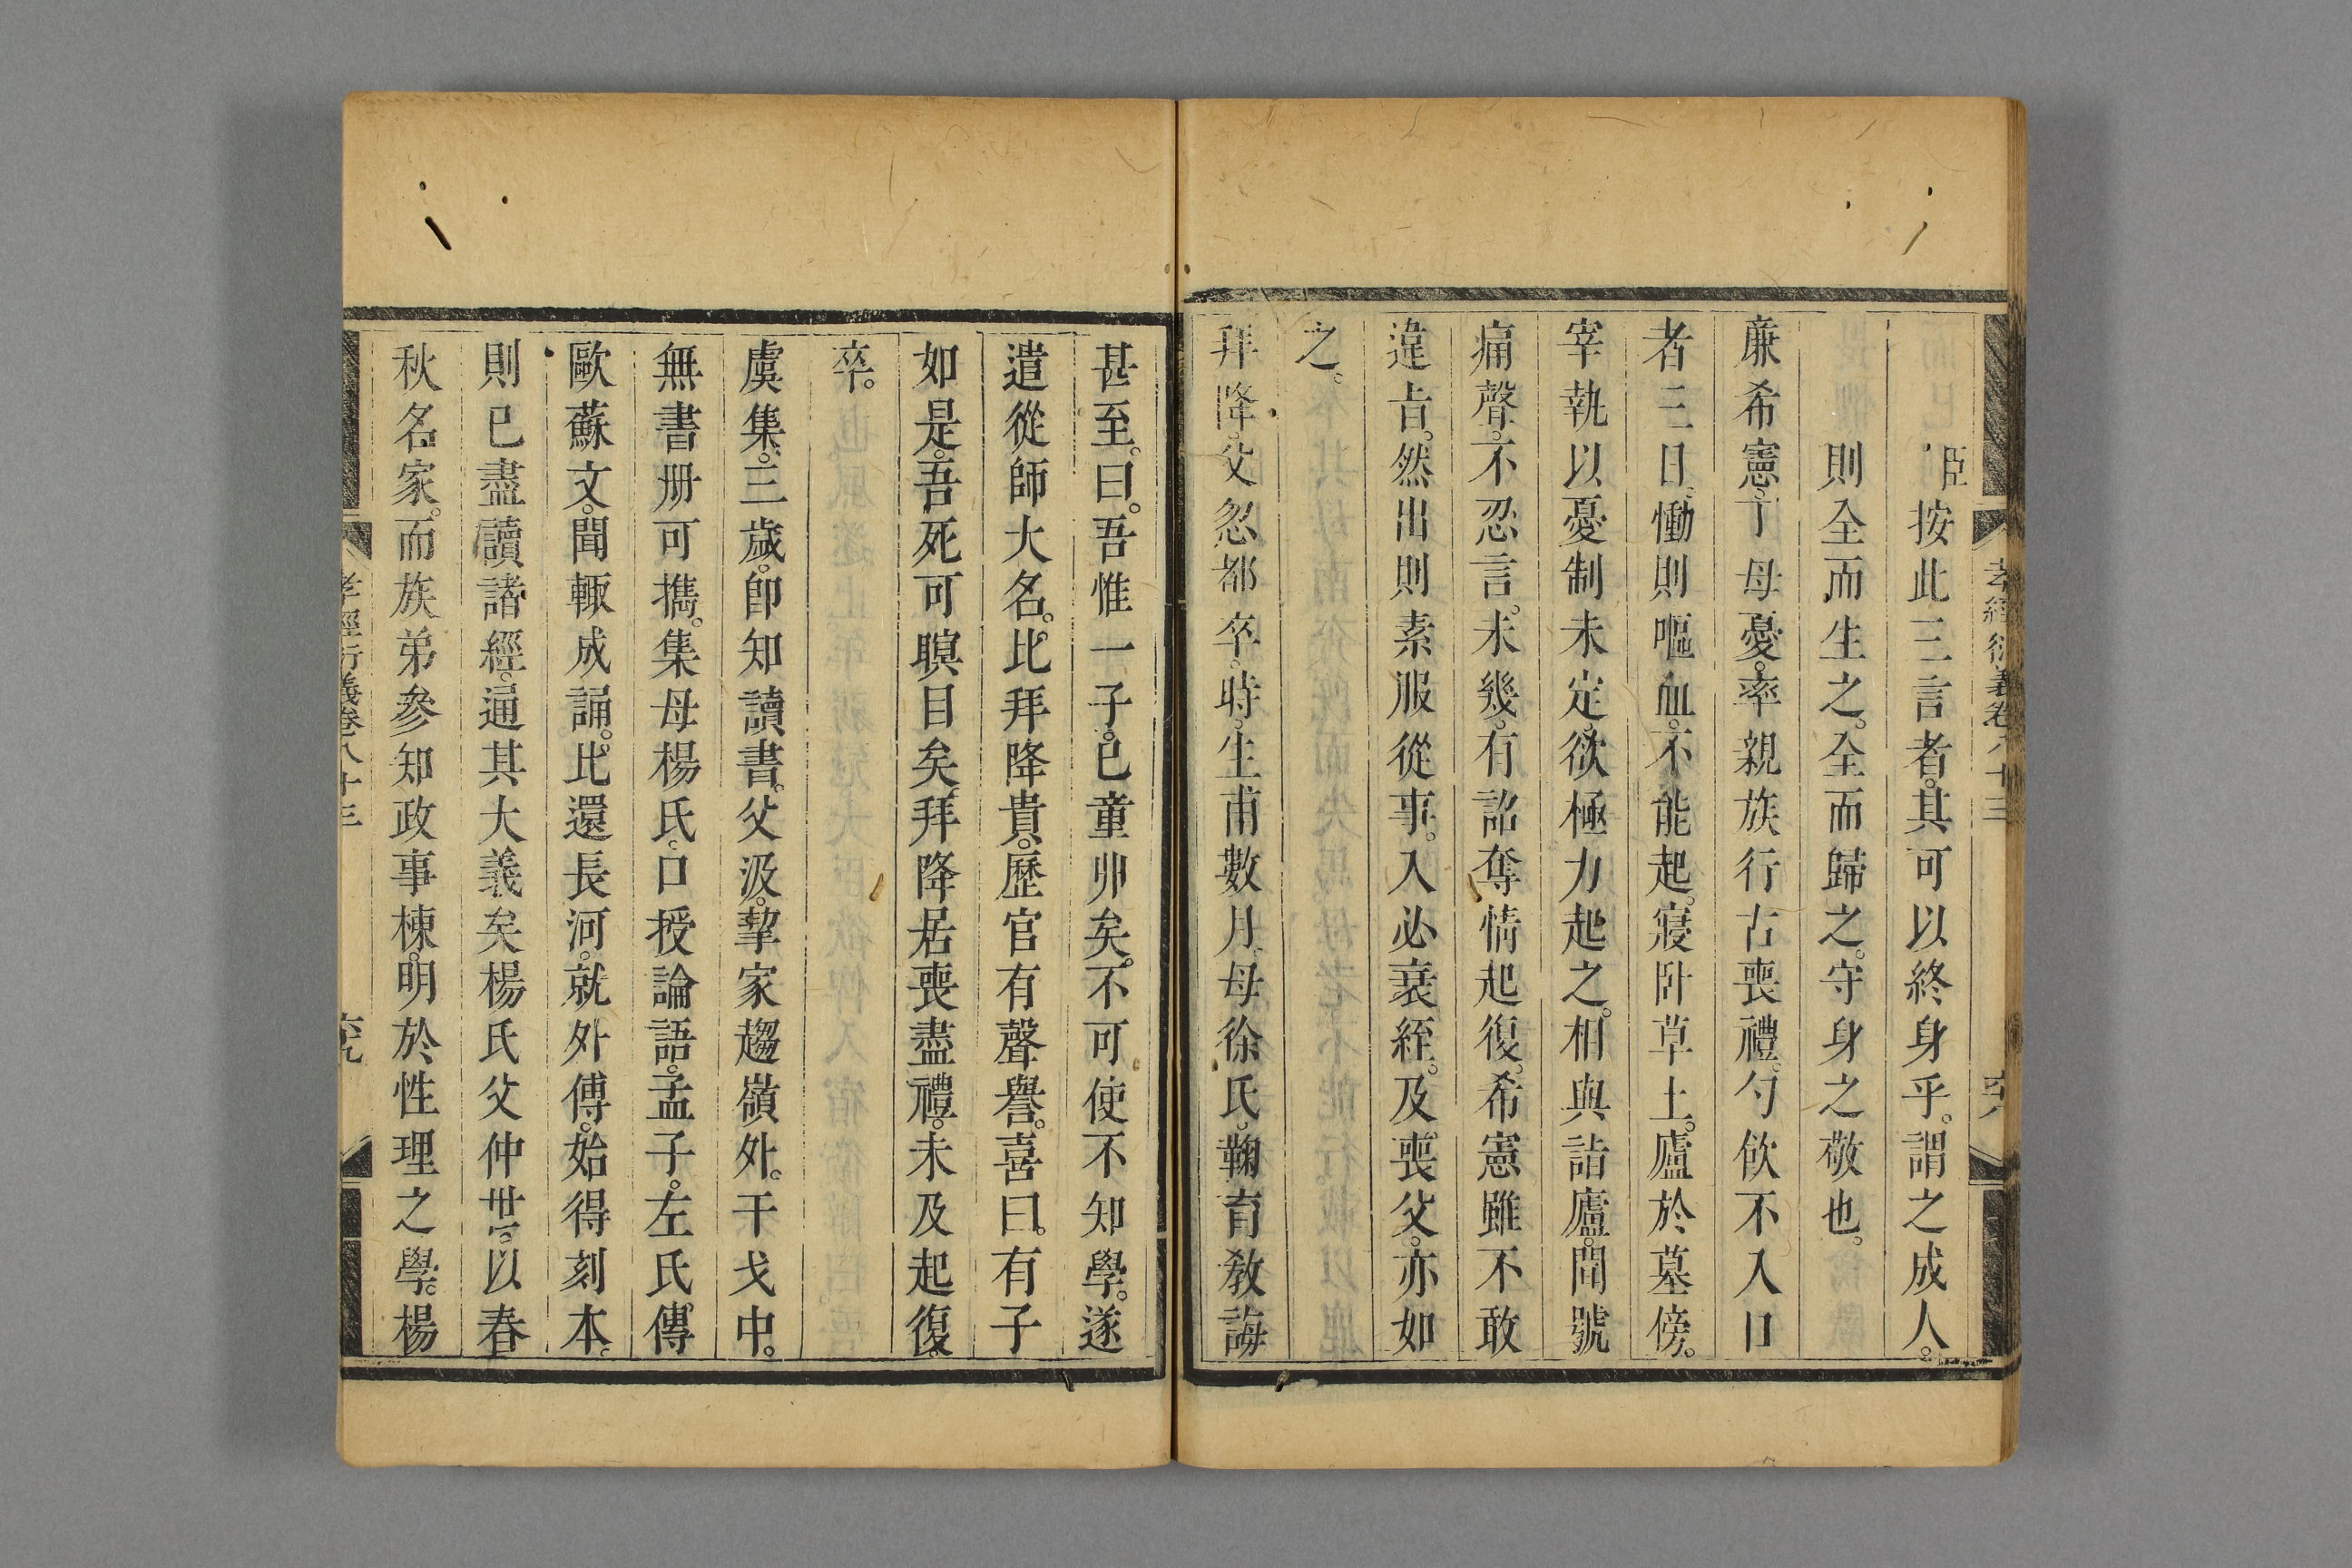 孝經衍義卷八十三
臣按此三言者。其可以終身乎。謂之成人。
則全而生之。全而歸之。守身之敬也。
廉希憲。丁母憂。率親族行古喪禮。勺飲不入口
者三日。慟則嘔血。不能起。寢臥草土。廬於墓傍。
宰執以憂制未定。欲極力起之。相與詣廬。聞號
痛聲。不忍言。未幾。有詔奪情起復。希憲雖不敢
違旨。然出則素服從事。入必衰絰。及喪父。亦如
之。
拜降。父忽都卒。時。生甫數月。母徐氏。鞠育敎誨
甚至。曰。吾惟一子。已童丱矣。不可使不知學。遂
遣從師大名。比拜降貴。歷官有聲譽。喜曰。有子
如是。吾死可瞑目矣。拜降居喪盡禮。未及起復。
卒。
虞集。三歲。卽知讀書。父汲。挈家趨嶺外。干戈中。
無書册可攜。集母楊氏。口授論語。孟子。左氏傳
歐蘇文。聞輒成誦。比還長河。就外傅。始得刻本。
則已盡讀諸經。通其大義矣楊氏父仲世。以春
秋名家。而族弟參知政事棟。明於性理之學。楊
孝經衍義卷八十三